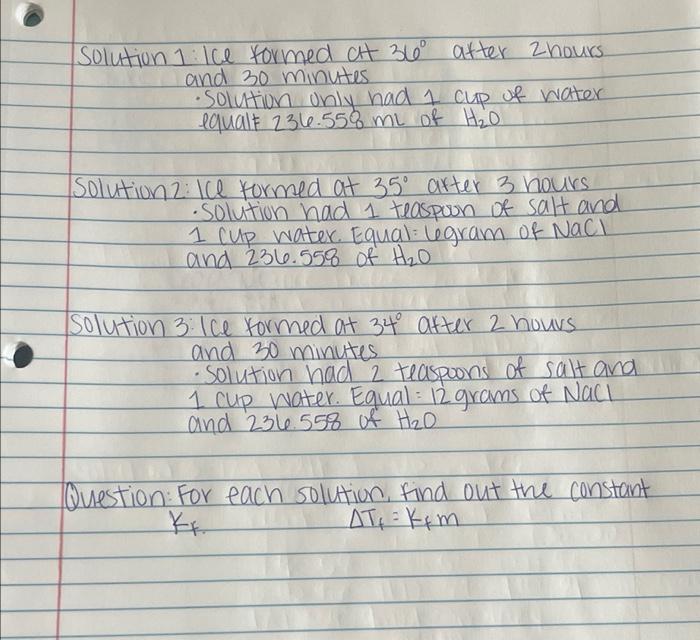 Solution 1: Ice formed at 36° after 2 hours
and 30 minutes
• Solution only had 1 cup of water
equal= 236.558 mL of H₂O
Solution 2: Ice formed at 35° after 3 hours
• Solution had 1 teaspoon of salt and
1 cup water. Equal: 6gram of NaCl
and 236.558 of H₂O
Solution 3: Ice formed at 34° after 2 hours
and 30 minutes
• Solution had 2 teaspoons of salt and
1 cup water. Equal: 12 grams of NaCl
and 236.558 of H₂O
Question: For each solution, find out the constant
Kf. ΔTf = Kfm